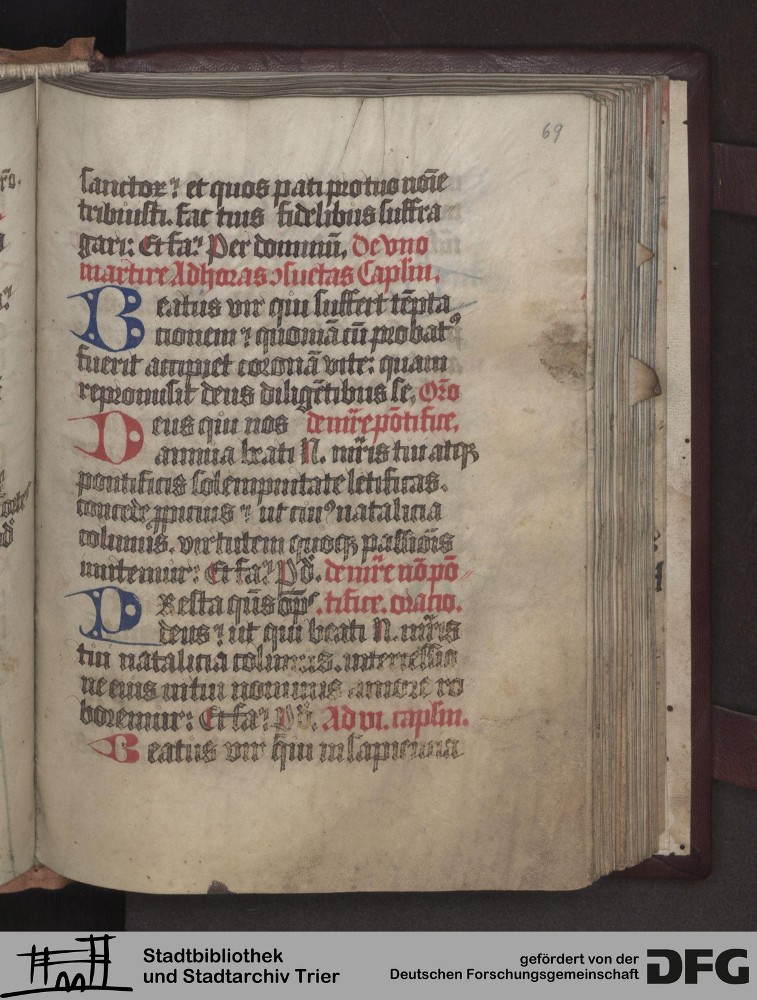 69
sanctoꝝ ⁊ et quos pati pro tuo noīe
tribuisti. fac tuis fidelibus suffra
gari: Et fa⁊ Per dominū, De vno
martire Ad horas ɔsuetas Caplm.
Beatus vir qui suffert tēpta
tionem ⁊ quoniā cū probatꝰ
fuerit accipiet coronā vite: quam
repromisit deus diligētibus se, Oro
Deus qui nos de mr̄e pōtifice,
annua beati N. mr̄is tui atqꝫ
pontificis solempnitate letificas.
concede ꝓpicius ⁊ ut cuiꝰ natalicia
colimus. virtutem quoqꝫ passiōis
imitemur: Et fa⁊ P d̄. de mr̄e nō pō
Presta qūs op̄s .tifice. oratio.
deus ⁊ ut qui beati N. mr̄is
tui natalicia colimus. intercessio
ne eius in tui nominis amore ro
boremur: Et fa⁊ P d̄. Ad vi. caplm.
Beatus vir qui in sapiencia
Stadtbibliothek
und Stadtarchiv Trier
gefördert von der
Deutschen Forschungsgemeinschaft
DFG